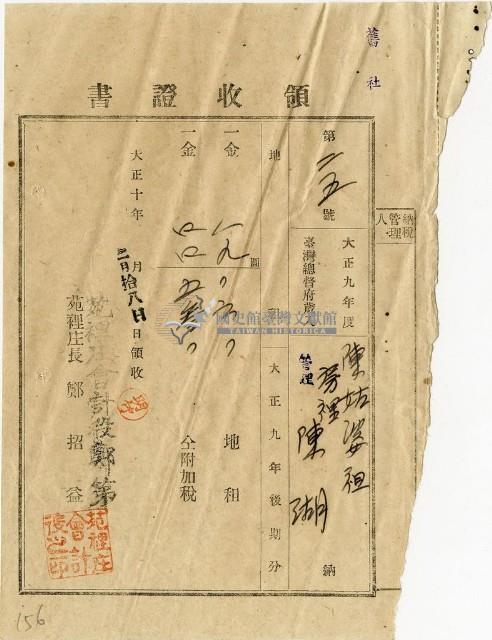 舊社
領收證書
納稅管理人
第二五號
大正九年度
臺灣總督府歲入
陳姑婆祖
管理
陳湖
納
地租
大正九年後期分
一金
圓
地租
一金
分附加稅
大正十年
二月拾八日
月
日領收
苑裡庄會計役鄭第
苑裡庄長鄭招益
苑裡庄會計役之印
國史館臺灣文獻館
TAIWAN HISTORICA
156